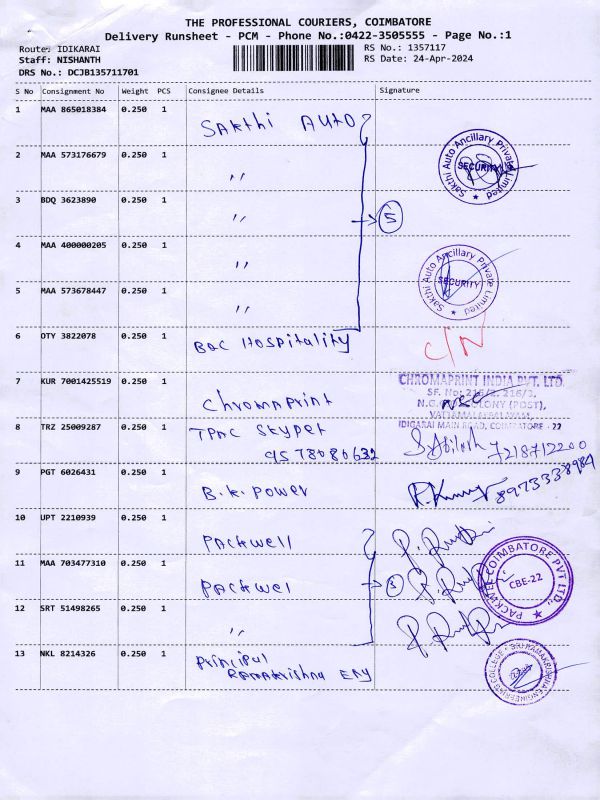 THE PROFESSIONAL COURIERS, COIMBATORE
Delivery Runsheet - PCM - Phone No.:0422-3505555 - Page No.:1
Route: IDIKARAI
Staff: NISHANTH
DRS No.: DCJB135711701
RS No.: 1357117
RS Date: 24-Apr-2024
S No Consignment No Weight PCS Consignee Details Signature
1 MAA 865018384 0.250 1 Sakthi Auto
2 MAA 573176679 0.250 1 "
Sakthi Auto Ancillary Private Limited
SECURITY
3 BDQ 3623890 0.250 1 "
5
4 MAA 400000205 0.250 1 "
Sakthi Auto Ancillary Private Limited
SECURITY
5 MAA 573678447 0.250 1 "
6 OTY 3822078 0.250 1 BOC Hospitality
C/N
7 KUR 7001425519 0.250 1 Chromaprint
CHROMAPRINT INDIA PVT. LTD.
SF. No: 216/2, 216/3,
N.G.G.O. COLONY (POST),
IDIGARAI MAIN ROAD, COIMBATORE - 22
8 TRZ 25009287 0.250 1
9578080632
7218712200
9 PGT 6026431 0.250 1 B.K. Power
R. Kumar 8973338984
10 UPT 2210939 0.250 1 Packwell
11 MAA 703477310 0.250 1 Packwel
3
PACKWELL COIMBATORE PVT LTD.,
CBE-22
12 SRT 51498265 0.250 1 "
13 NKL 8214326 0.250 1 Principal
Ramakrishna Eng
SRI RAMAKRISHNA ENGINEERING COLLEGE